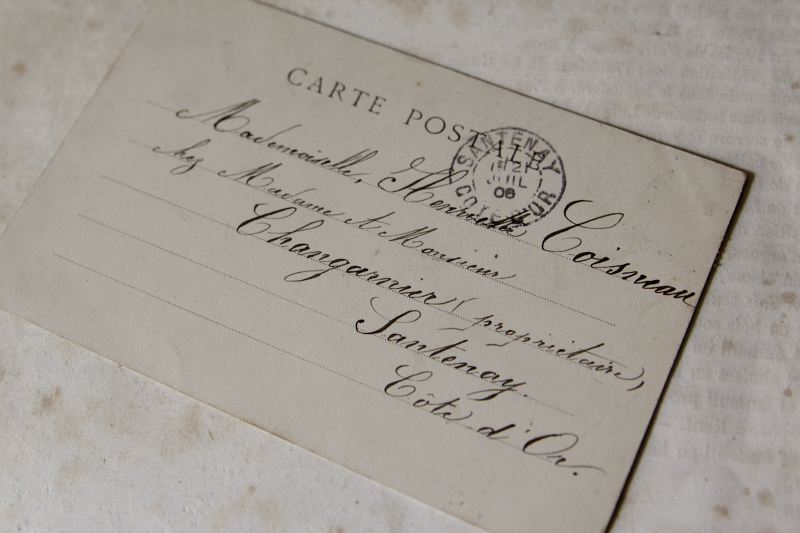 CARTE POSTALE
SANTENAY
21
JUIL
06
COTE D'OR
Mademoiselle, Henriette Coisneau
chez Madame et Monsieur
Changarnier (propriétaire,
Santenay.
Côte d'Or.